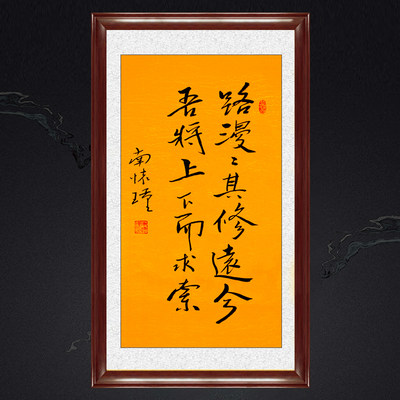 路漫〻其修遠兮
吾將上下而求索
南懷瑾